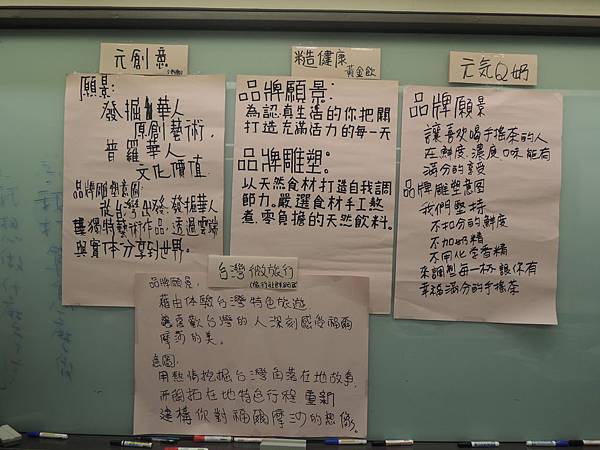 元創意
願景:
發掘華人
原創藝術,
普羅華人
文化價值
品牌雕塑意圖:
從台灣出發,發掘華人
獨特藝術作品,透過雲端
與實体分享到世界。
糙健康
黃金飲
品牌願景:
為認真生活的你把關
打造充滿活力的每一天
品牌雕塑:
以天然食材打造自我調
節力。嚴選食材手工熬
煮,零負擔的天然飲料。
元気Q奶
品牌願景
讓喜歡喝手搖茶的人
在鮮度,濃度,口味,能有
滿分的享受
品牌雕塑意圖
我們堅持
不扣分的鮮度
不加奶精
不用化學香精
來調製每一杯讓你有
幸福滿分的手搖茶
台灣微旅行
品牌願景:
藉由体驗台灣特色旅遊
喜歡台灣的人深刻感受福爾
摩莎的美。
意圖:
用熱情挖掘台灣角落在地故事
開拓在地特色行程 重新
建構你對福爾摩沙的想像。